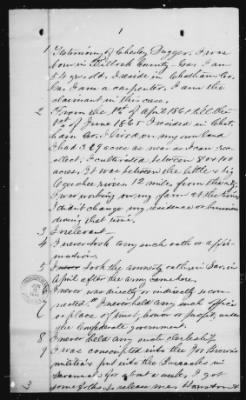 1
1 Testimony of Charley Duggar. I was
born in Bullock County - Ga. I am
54 yrs old. I reside in Chatham Co.
Ga. I am a carpenter. I am the
claimant in this case.
2 From the 1st of April 1861 till the
1st of June 1865 I resided in Chat-
ham Co. I lived on my own land
I had 329 acres as near as I can rec-
ollect. I cultivated between 80 & 100
acres. It was between the little & big
Ogechee river 12 mile from the city.
I was working on my farm all the time
I didn't change my residence or business
during that time.
3 Irrelevant -
4 I never took any such oath or affir-
mation
5 I took the amnesty oath in Sav. in
April after the army came here.
6 I never was directly or indirectly con-
nected. I never held any such office
or place of trust, honor or profit, under
the Confederate government.
8 I never held any such clerkship
9 I was conscripted into the Joe Brown
militia & put into the in
Savannah for about a week, I got
some folks to release me
3